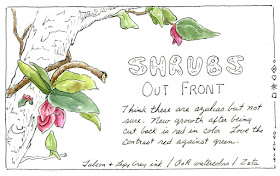 SHRUBS
OUT FRONT
Think these are azalias but not
sure. New growth after being
cut back is red in color. Love the
contrast red against green.
Grey ink / DaR watercolors / Zeta